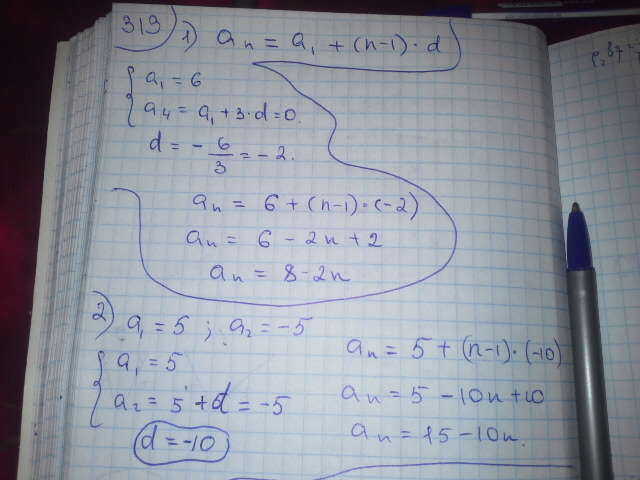 319
1) aₙ = a₁ + (n-1)·d
{ a₁ = 6
{ a₄ = a₁ + 3·d = 0
d = -6/3 = -2.
aₙ = 6 + (n-1)·(-2)
aₙ = 6 - 2n + 2
aₙ = 8 - 2n
2) a₁ = 5 ; a₂ = -5
{ a₁ = 5
{ a₂ = 5 + d = -5
d = -10
aₙ = 5 + (n-1)·(-10)
aₙ = 5 - 10n + 10
aₙ = 15 - 10n.